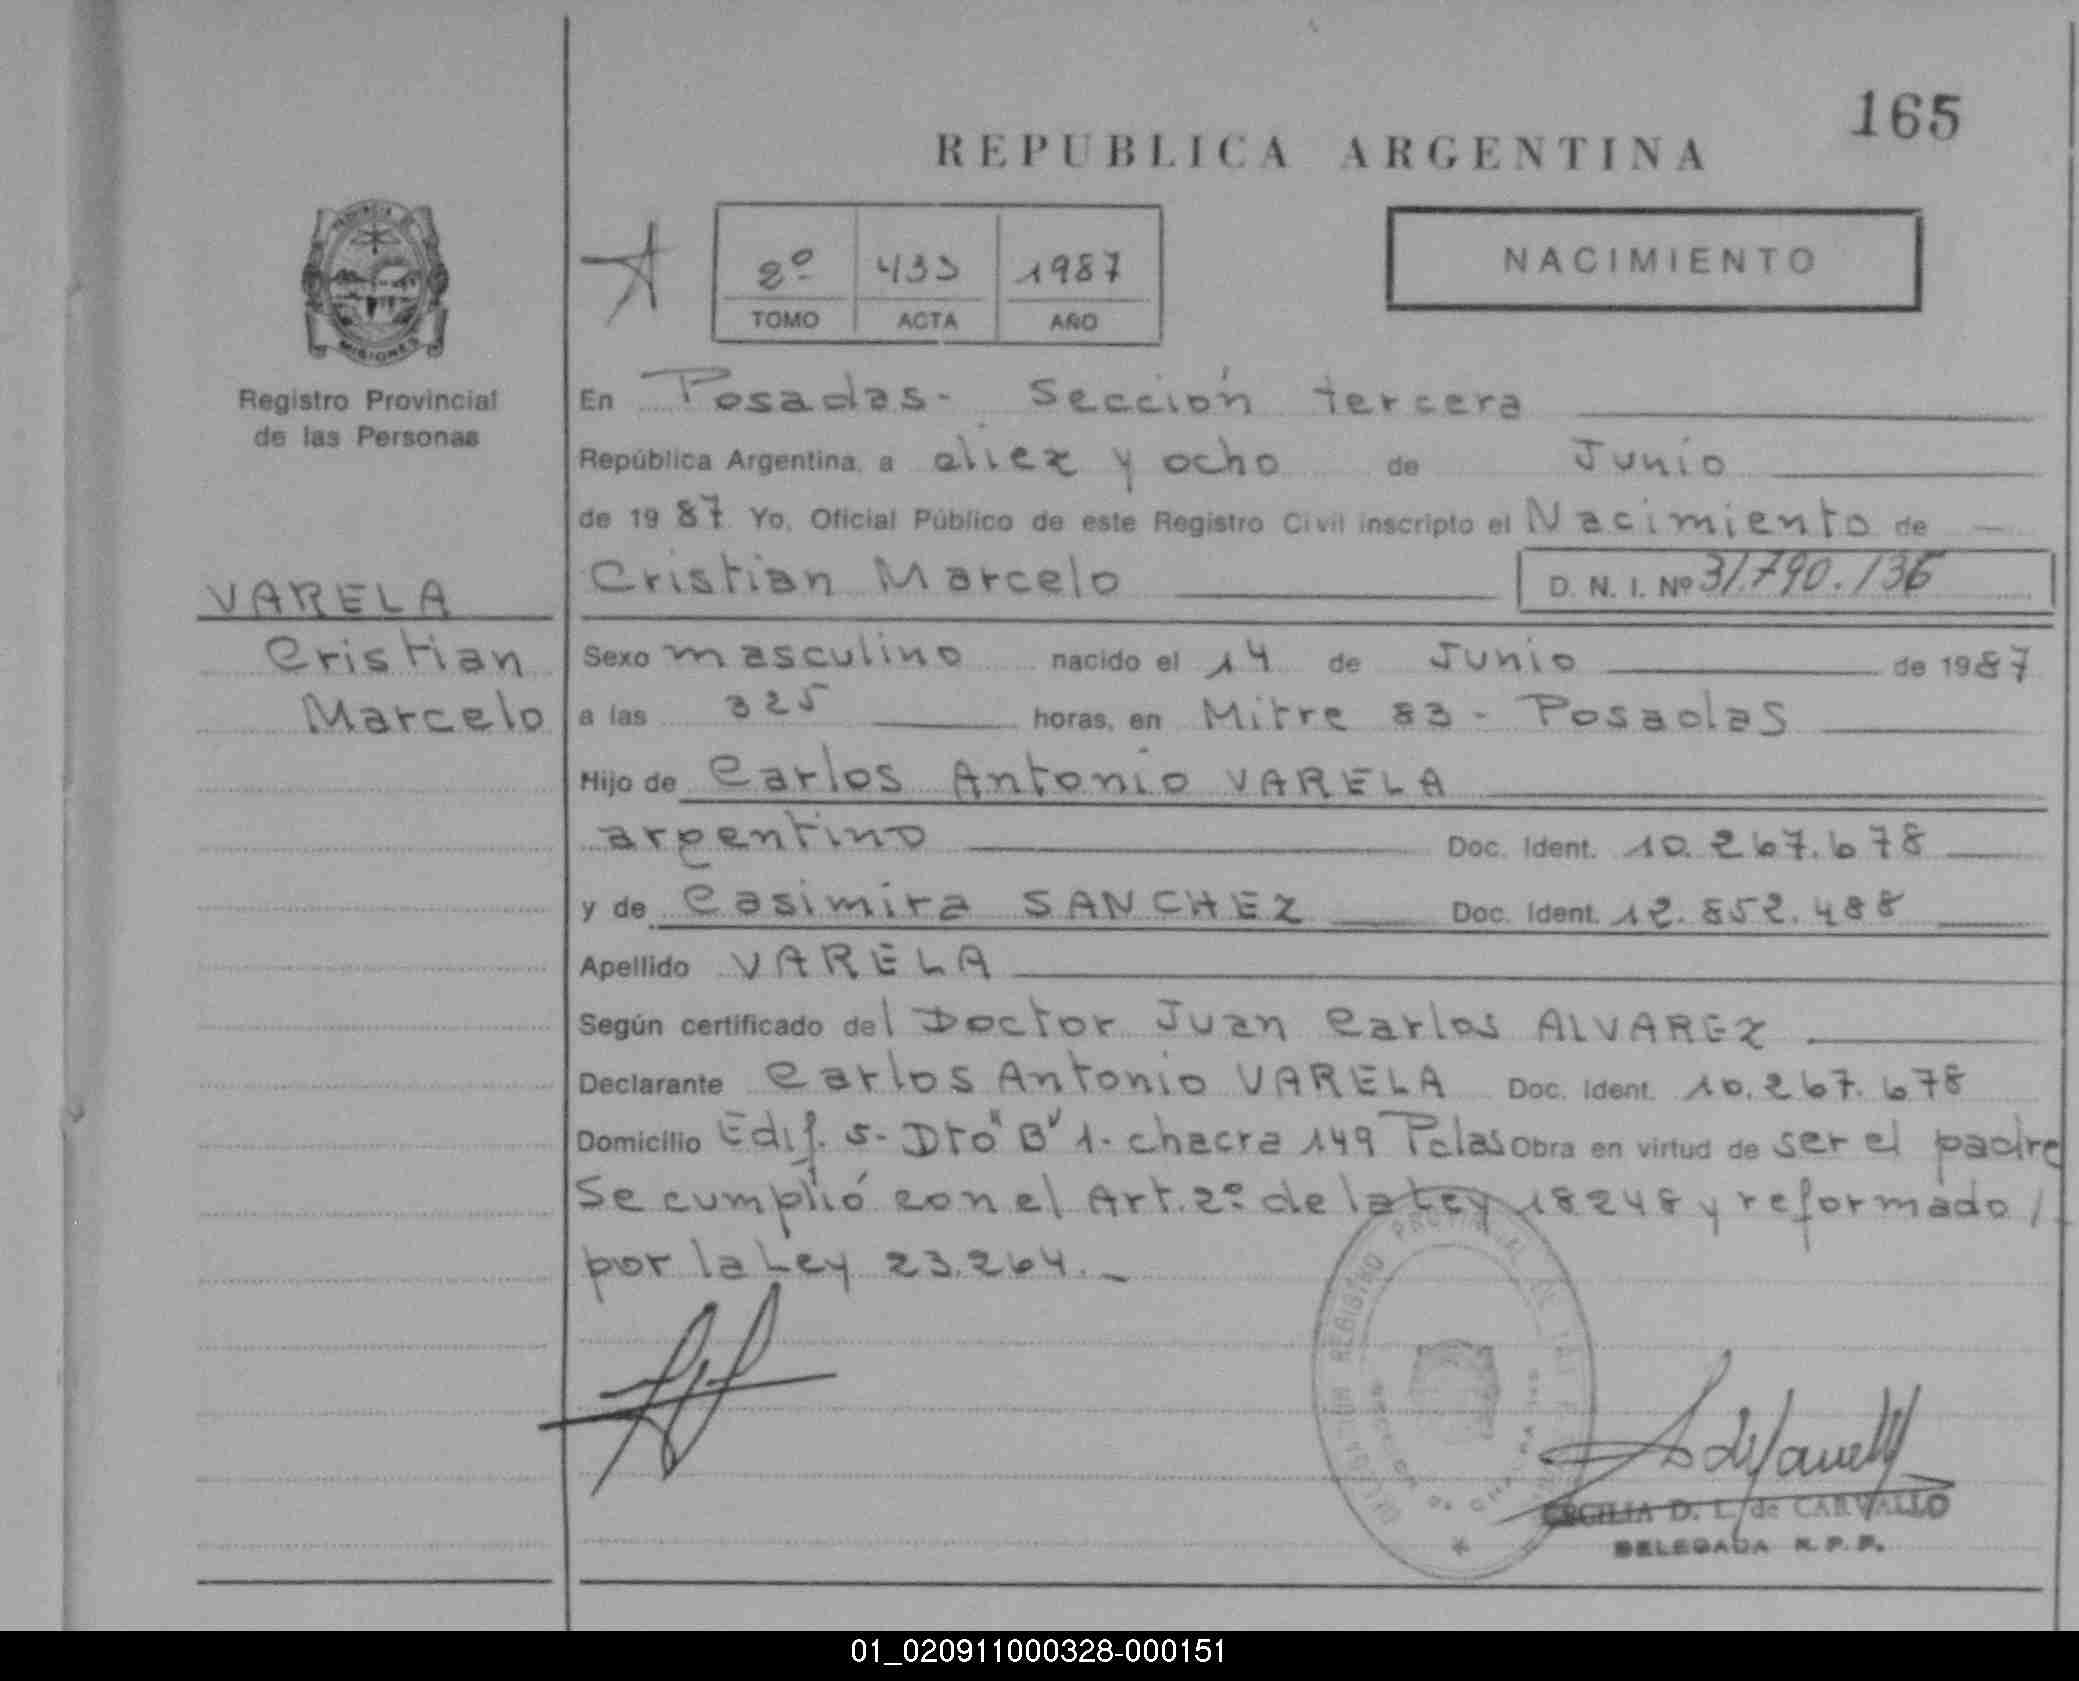 165
REPUBLICA ARGENTINA
2º 433 1987
TOMO ACTA AÑO
NACIMIENTO
MISIONES
Registro Provincial
de las Personas
En Posadas- Sección tercera
República Argentina, a diez y ocho de Junio
de 1987 Yo, Oficial Público de este Registro Civil inscripto el Nacimiento de
VARELA
Cristian Marcelo D. N. I. Nº 31.790.136
Cristian
Sexo masculino nacido el 14 de Junio de 1987
Marcelo
a las 325 horas, en Mitre 83 - Posadas
Hijo de Carlos Antonio VARELA
argentino Doc. Ident. 10.267.678
y de Casimira SANCHEZ Doc. Ident. 12.852.488
Apellido VARELA
Según certificado del Doctor Juan Carlos ALVAREZ
Declarante Carlos Antonio VARELA Doc. Ident. 10.267.678
Domicilio Edif. 5- Dto "B" 1- chacra 149 Pdas Obra en virtud de ser el padre
Se cumplió con el Art. 2º de la Ley 18248 y reformado /
por la Ley 23.264.-
REGISTRO
CECILIA D. L. de CARVALLO
DELEGADA R. P. P.
01_020911000328-000151